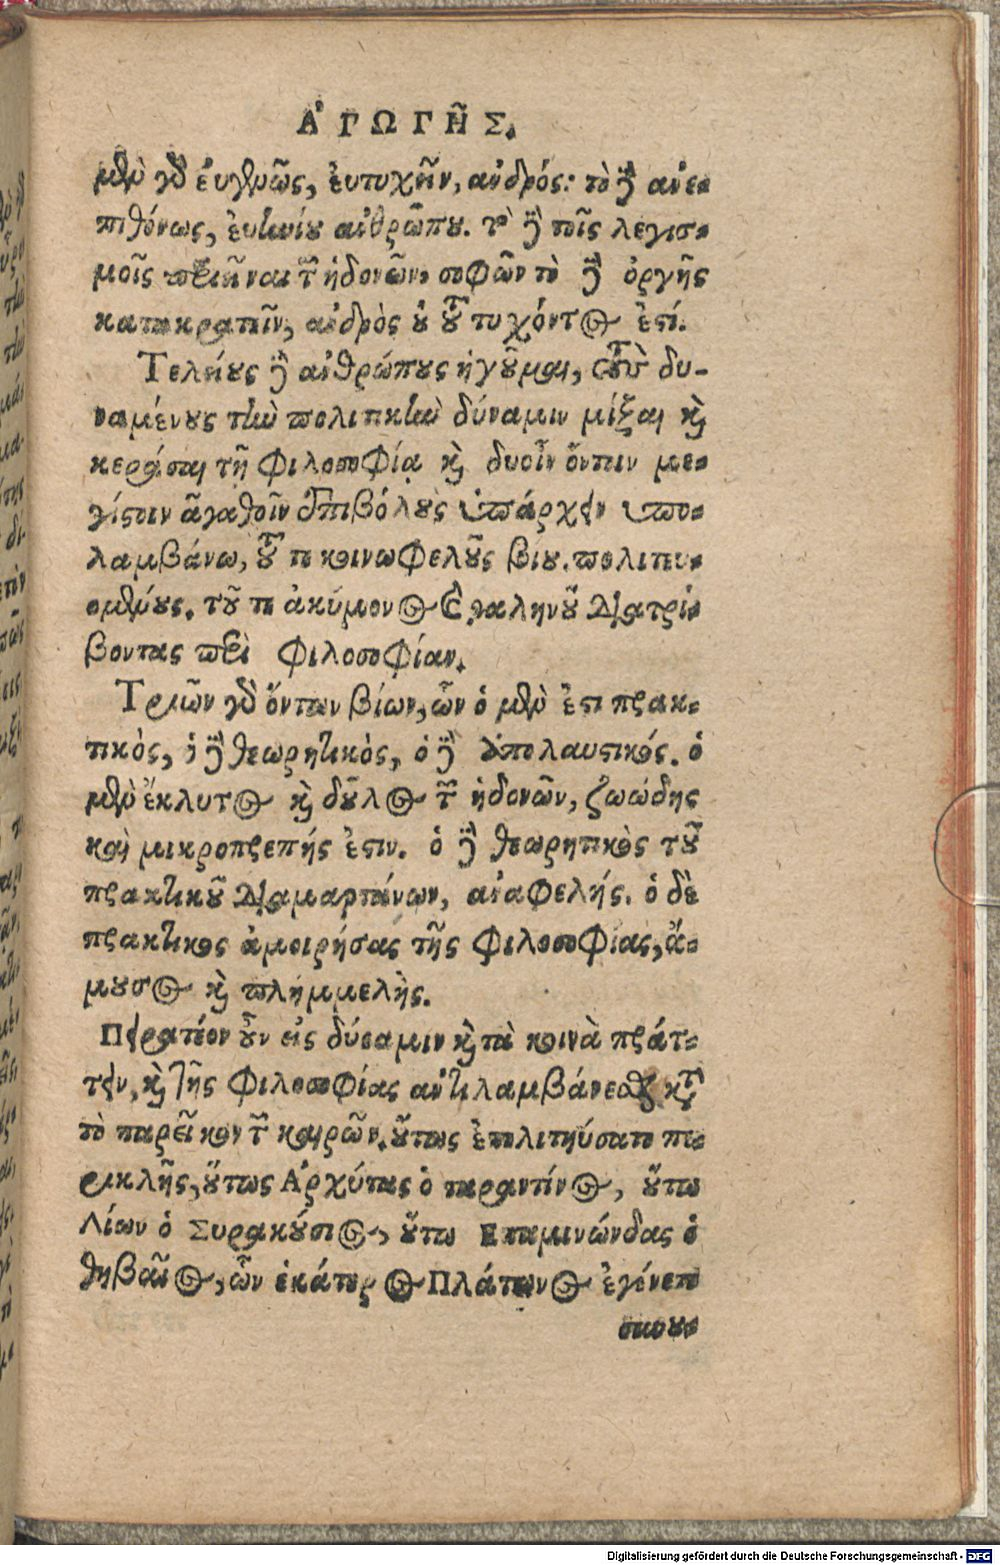 ἈΓΩΓΗ͂Σ.
μὲν γὰρ ἐυγενῶς, ἐυτυχεῖν, ἀνδρός: τὸ δὲ ἀνε-
πιθόνως, ἐυηνίου ἀνθρώπου. τὸ δὲ τοῖς λογισ-
μοῖς περιεῖναι τῶν ἡδονῶν, σοφῶν τὸ δὲ ὀργῆς
κατακρατεῖν, ἀνδρὸς ὀ οὐ τυχόντος ἐστί.
Τελείους δὲ ἀνθρώπους ἡγοῦμαι, τοὺς δυ-
ναμένους τὴν πολιτικὴν δύναμιν μίξαι καὶ
κεράσαι τῇ φιλοσοφίᾳ καὶ δυοῖν ὄντοιν με-
γίστοιν ἀγαθοῖν ἐπιβόλους ὑπάρχειν ὑπο-
λαμβάνω, τοῦ τε κοινωφελοῦς βίου. πολιτευ-
ομένους. τοῦ τε ἀκύμονος καὶ γαληνοῦ διατρί-
βοντας περὶ φιλοσοφίαν.
Τριῶν γὰρ ὄντων βίων, ὧν ὁ μὲν ἐστι πρακ-
τικὸς, ὁ δὲ θεωρητικὸς, ὁ δὲ ἀπολαυστικός. ὁ
μὲν ἔκλυτος καὶ δοῦλος τῶν ἡδονῶν, ζωώδης
καὶ μικροπρεπής ἐστιν. ὁ δὲ θεωρητικὸς τοῦ
πρακτικοῦ διαμαρτάνων, ἀναφελής. ὁ δὲ
πρακτικος ἀμοιρήσας τῆς φιλοσοφίας, ἄ-
μουσος καὶ πλημμελὴς.
Πειρατέον οὖν εἰς δύναμιν καὶ τὰ κοινὰ πράτ-
τειν, καὶ τῆς φιλοσοφίας ἀντιλαμβάνεσθαι κατὰ
τὸ παρεῖκον τῶν καιρῶν. οὕτως ἐπολιτεύσατο πε-
ρικλῆς, οὕτως Ἀρχύτας ὁ ταραντίνος, οὕτω
Δίων ὁ Συρακούσιος, οὕτω Επαμινώνδας ὁ
θηβαῖος, ὧν ἑκάτερος Πλάτωνος ἐγένετο